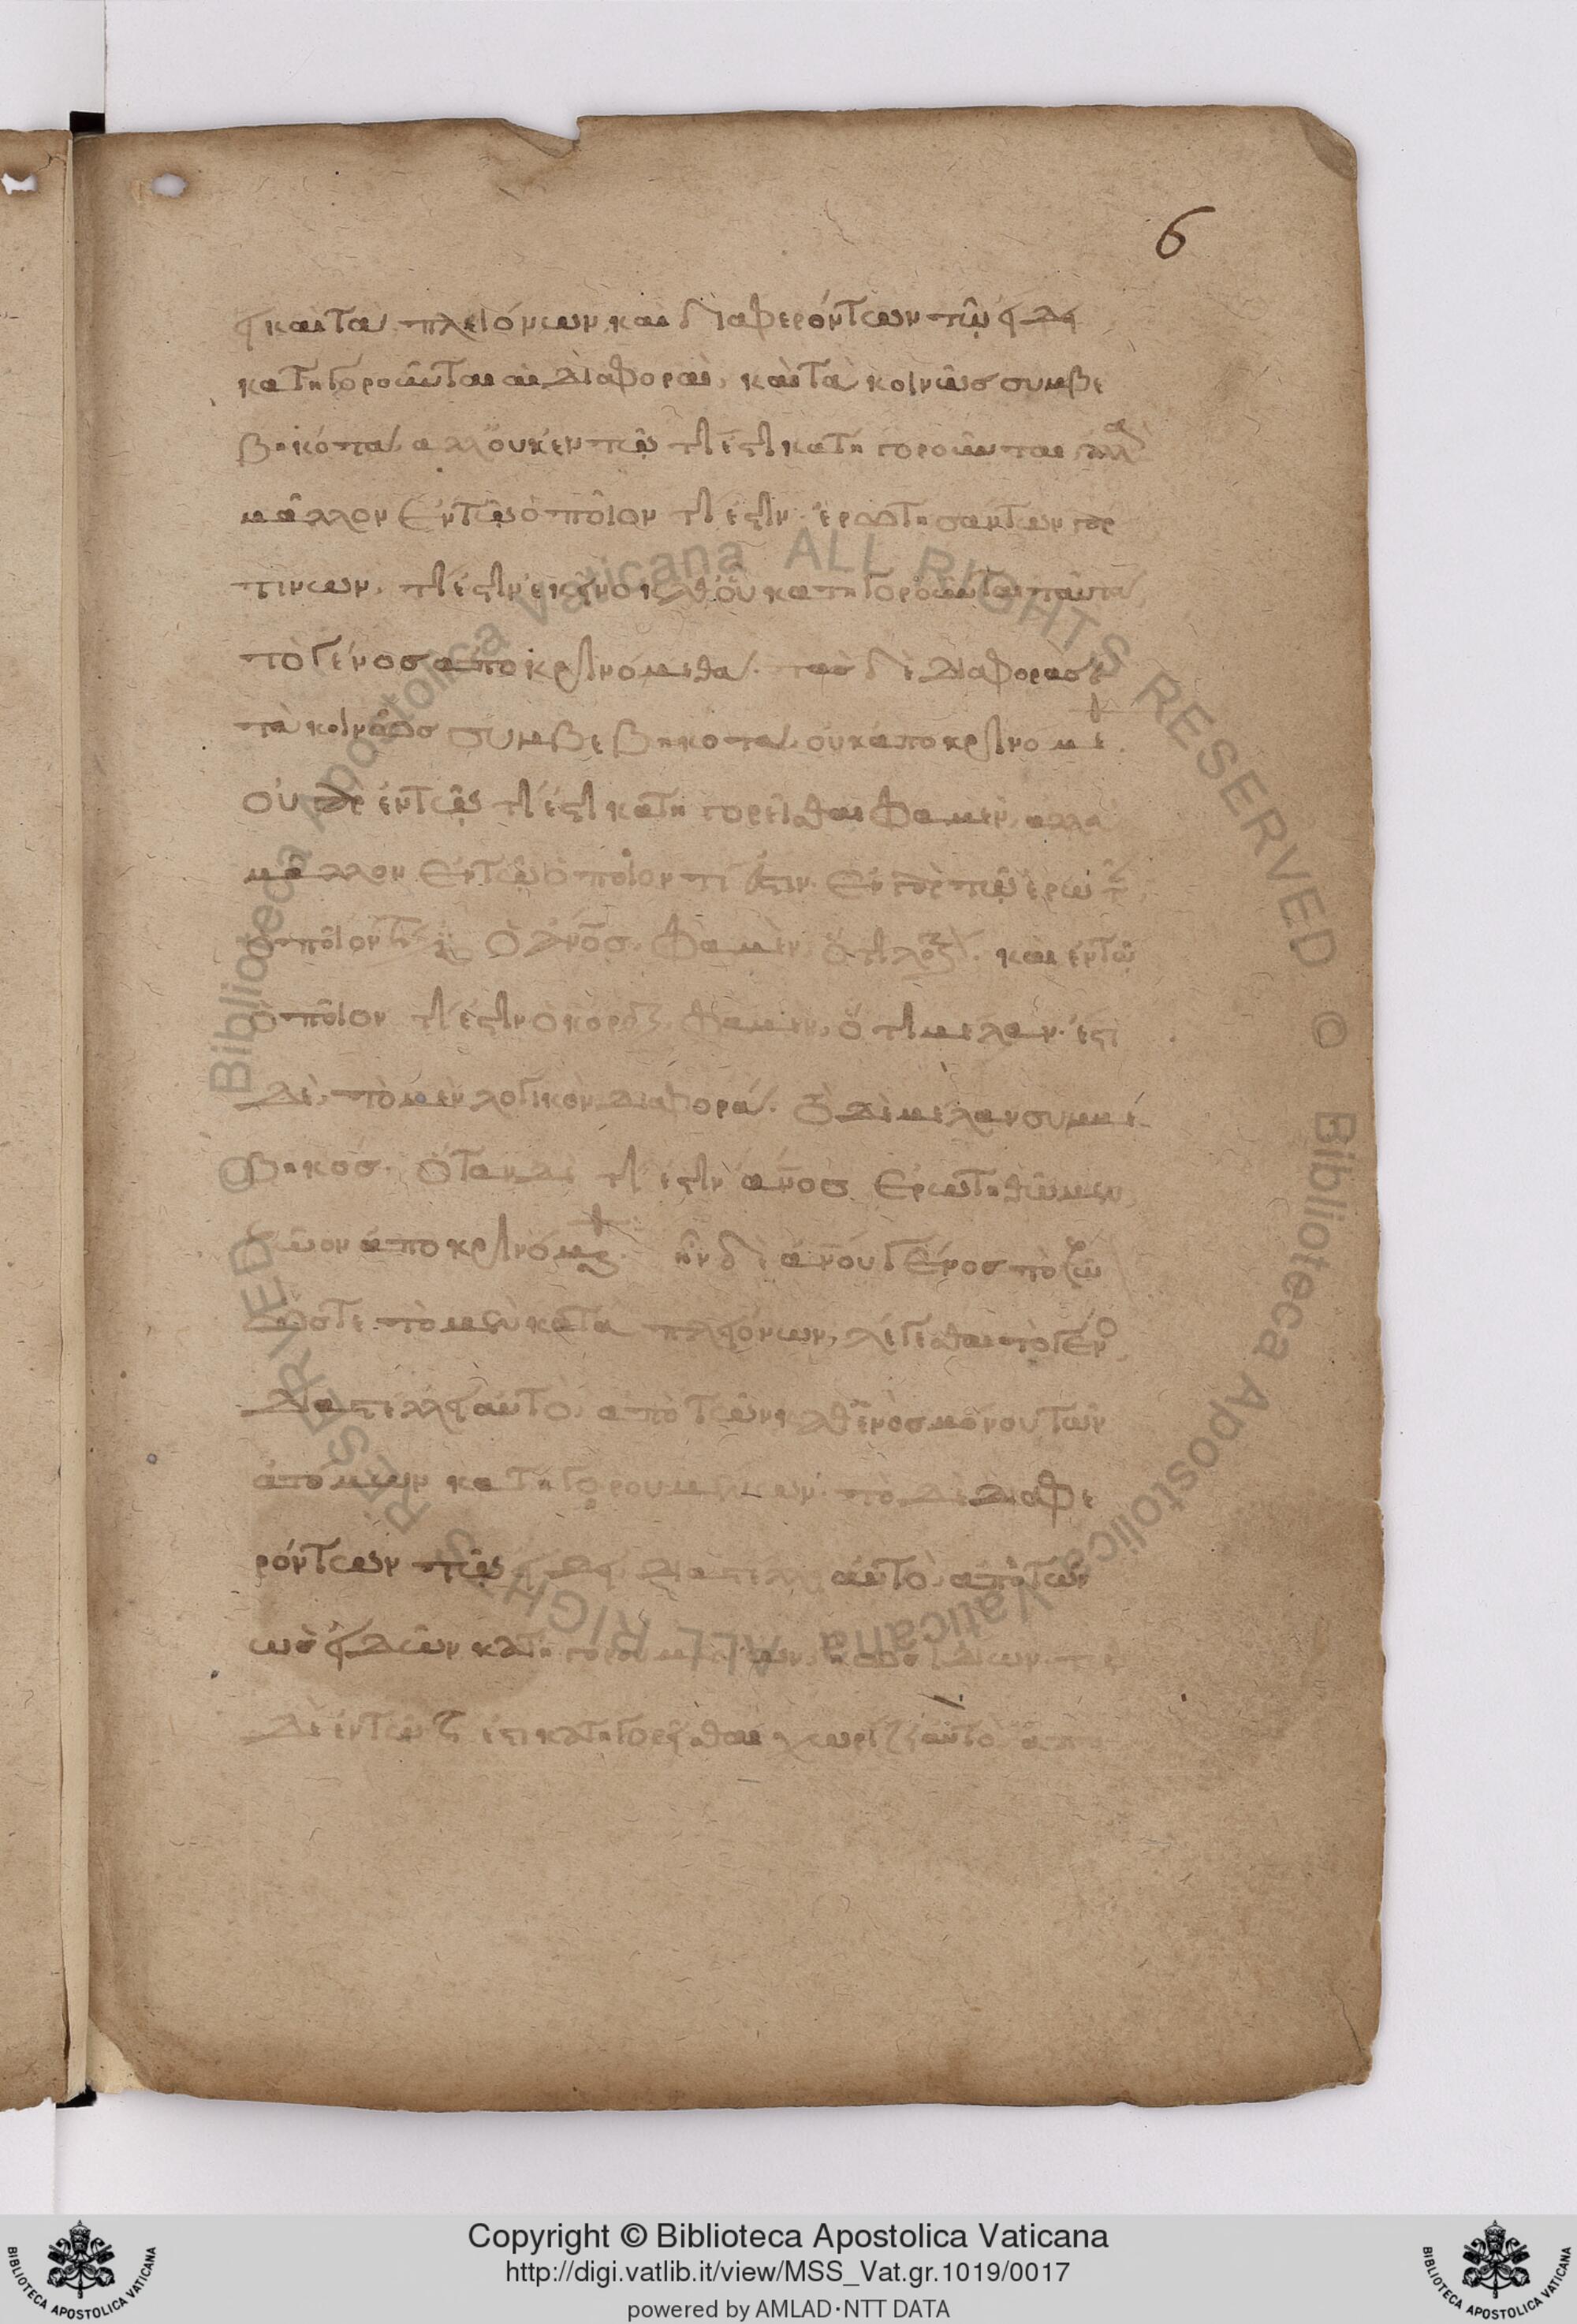 6
εἰ καὶ κατὰ πλειόνων καὶ διαφερόντων τῷ εἴδει
κατηγοροῦνται αἱ διαφοραὶ, καὶ τὰ κοινῶς συμβε
βηκότα, ἀλλ' οὐκ ἐν τῷ τί ἐστι κατηγοροῦνται, ἀλλὰ
μᾶλλον ἐν τῷ ὁποῖόν τί ἐστιν. ἐρωτησάντων γάρ
τινων, τί ἐστιν ἐκεῖνο καθ' οὗ κατηγοροῦνται ταῦτα,
τὸ γένος ἀποκρινόμεθα. τὰς δὲ διαφορὰς καὶ
τὰ κοινῶς συμβεβηκότα, οὐκ ἀποκρινόμεθα.
οὐ γὰρ ἐν τῷ τί ἐστι κατηγορεῖσθαι φαμὲν, ἀλλὰ
μᾶλλον ἐν τῷ ὁποῖόν τί ἐστιν. ἐν γὰρ τῷ ἐρωτᾶν
ὁποῖόν τί ἐστιν ὁ ἄνος, φαμὲν, ὅτι λογικόν. καὶ ἐν τῷ
ὁποῖόν τί ἐστιν ὁ κόραξ, φαμὲν, ὅτι μέλαν. ἔστι
δὲ, τὸ μὲν λογικὸν διαφορά. τὸ δὲ μέλαν συμβε
βηκός. ὅταν δὲ τί ἐστιν ἄνος ἐρωτηθῶμεν,
ζῶον ἀποκρινόμεθα. ἦν δὲ ἀνου γένος τὸ ζῶον
ὥστε τὸ μὲν κατὰ πλειόνων, λέγεσθαι τὸ γένος
διαστέλλει αὐτὸ, ἀπὸ τῶν καθ' ἑνὸς μόνου τῶν
ἀτόμων κατηγορουμένων. τὸ δὲ διαφε
ρόντων τῷ εἴδει διαστέλλει αὐτὸ, ἀπὸ τῶν
ὡς εἰδῶν κατηγορουμένων, ἢ ὡς ἰδίων. τὸ
δὲ ἐν τῷ τί ἐστι κατηγορεῖσθαι, χωρίζει αὐτὸ ἀπὸ
Copyright © Biblioteca Apostolica Vaticana
http://digi.vatlib.it/view/MSS_Vat.gr.1019/0017
powered by AMLAD·NTT DATA